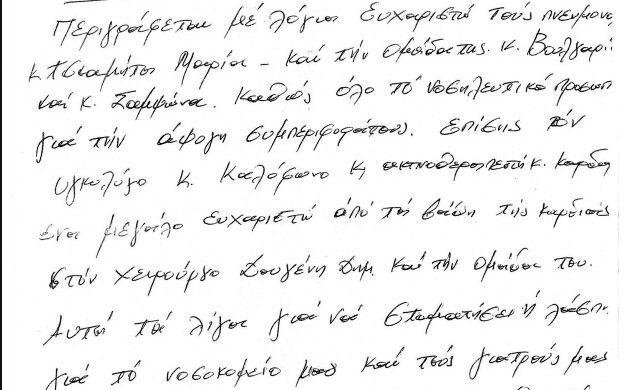 Περιγράφεται με λόγια Ευχαριστώ τούς πνευμονο
κ. Τσιαμήτα Μαρία - και τήν ομάδα της κ. Βούλγαρη
και κ. Σαμψώνα. Καθώς όλο τό νοσηλευτικό προσωπ
γιά τήν άψογη συμπεριφορά τους. Επίσης τόν
ογκολόγο κ. Καλόφωνο κ ακτινοθεραπευτή κ. Καρδα
ένα μεγάλο ευχαριστώ από τά βάθη τής καρδιάς
στόν χειρούργο Δουγένη Δημ. και τήν ομάδα του.
Αυτά τά λίγα γιά νά σταματήσει ή λάσπη
γιά τό νοσοκομείο μας και τούς γιατρούς μας